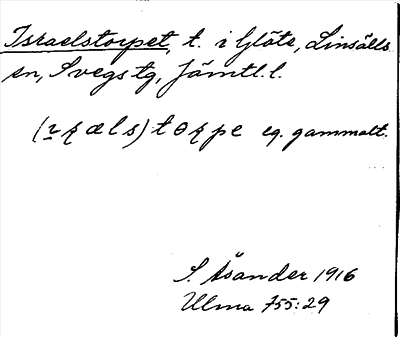 Israelstorpet, t. i Glöte, Linsälls
sn, Svegs tg, Jämtl. l.
(ɪ̱ʀæls)tɵʀpe eg. gammalt.
S. Åsander 1916
Ulma 755:29